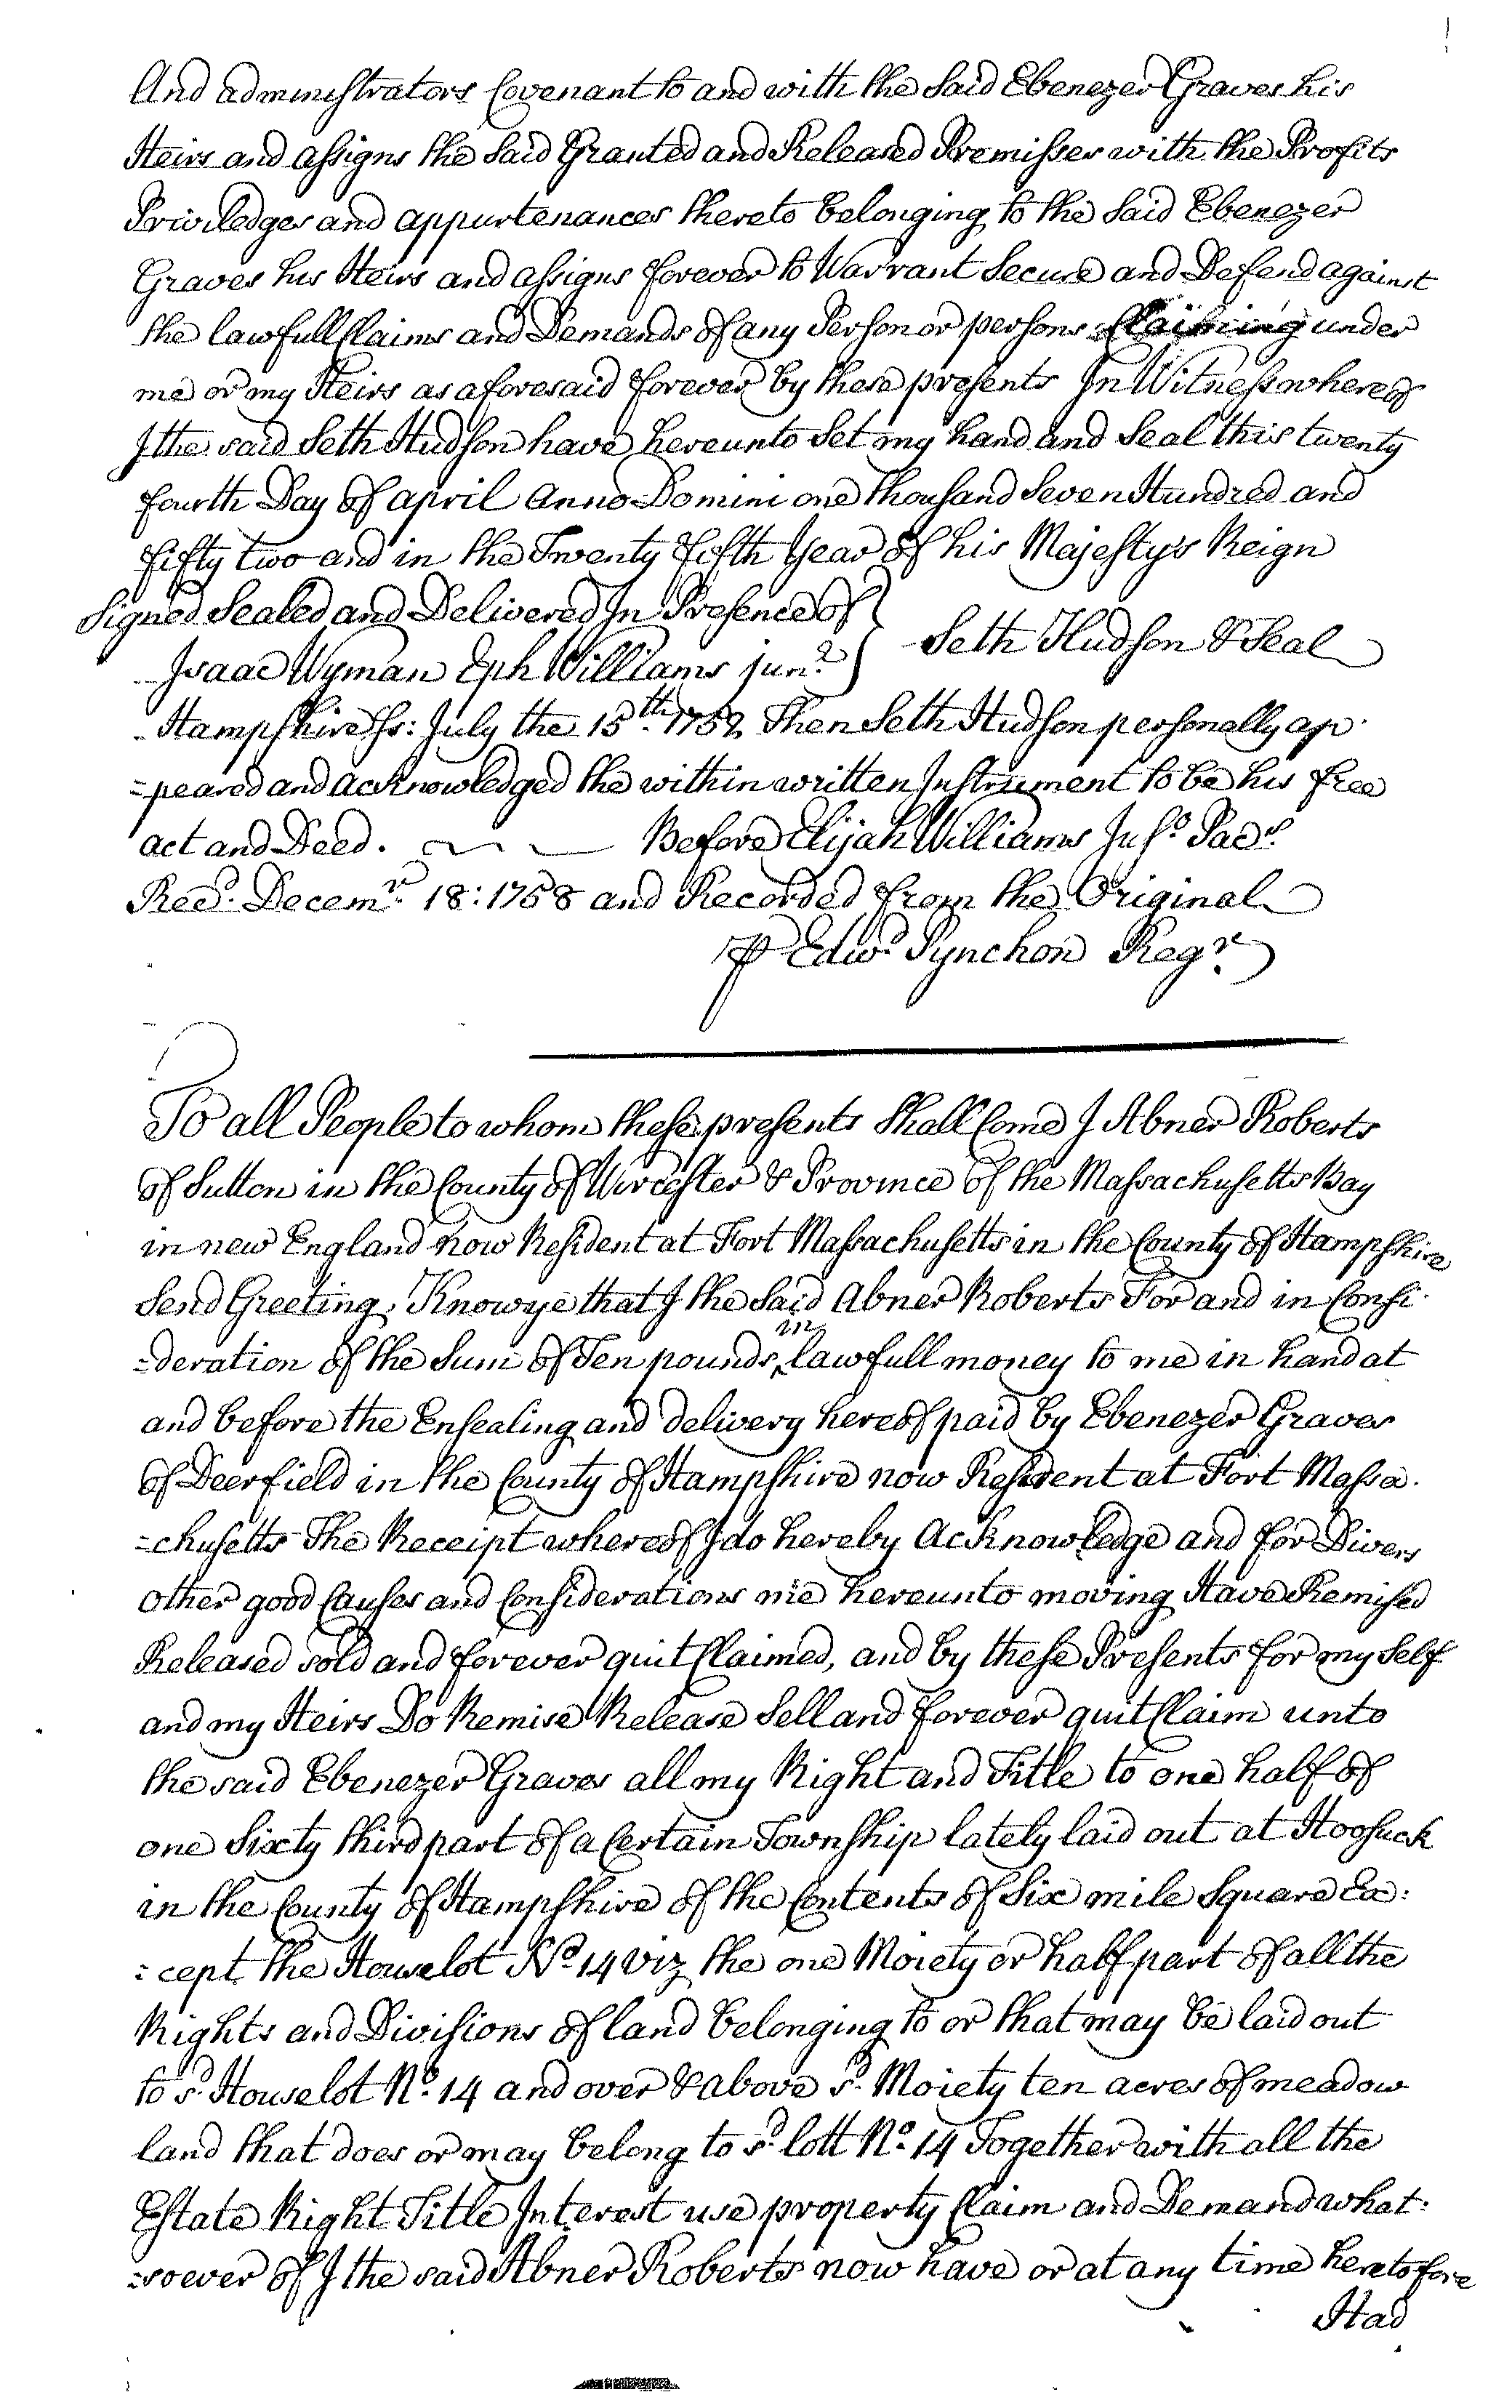 And administrators Covenant to and with the Said Ebenezer Graves his
Heirs and assigns the Said Granted and Released Premisses with the Profits
Priviledges and appurtenances thereto belonging to the Said Ebenezer
Graves his Heirs and assigns forever to Warrant Secure and Defend against
the lawfull Claims and Demands of any Person or persons Claiming under
me or my Heirs as aforesaid forever by these presents In Witness whereof
I the said Seth Hudson have hereunto Set my hand and Seal this twenty
fourth Day of april Anno Domini one thousand Seven Hundred and
fifty two and in the Twenty fifth Year of his Majesty's Reign
Signed Sealed and Delivered In Presence of
Isaac Wyman Eph Williams junr.
Seth Hudson & Seal
Hampshire Ss: July the 15th. 1752 Then Seth Hudson personally ap
=peared and acknowledged the within written Instrument to be his free
act and Deed. Before Elijah Williams Juso. Pacs.
Recd. Decemr. 18: 1758 and Recorded from the Original
P Edwd Pynchon Regr.
To all People to whom these presents Shall Come I Abner Roberts
of Sutton in the County of Worcester & Province of the Massachusetts Bay
in new England now Resident at Fort Massachusetts in the County of Hampshire
Send Greeting. Know ye that I the Said Abner Roberts For and in Consi
=deration of the Sum of Ten pounds in lawfull money to me in hand at
and before the Ensealing and delivery hereof paid by Ebenezer Graves
of Deerfield in the County of Hampshire now Resident at Fort Massa
=chusetts The Receipt whereof I do hereby Acknowledge and for Divers
other good Causes and Considerations me hereunto moving Have Remised
Released sold and forever quit Claimed, and by these Presents for my Self
and my Heirs Do Remise Release Sell and forever quit Claim unto
the said Ebenezer Graves all my Right and Title to one half of
one Sixty third part of a Certain Township lately laid out at Hoosuck
in the County of Hampshire of the Contents of Six mile Square Ex:
:cept the Houselot No 14 viz the one Moiety or half part of all the
Rights and Divisions of land belonging to or that may be laid out
to sd. Houselot No. 14 and over & above sd. Moiety ten acres of meadow
land that does or may belong to sd. lott No. 14 Together with all the
Estate Right Title Interest use property Claim and Demand what:
:soever of I the said Abner Roberts now have or at any time heretofore
Had